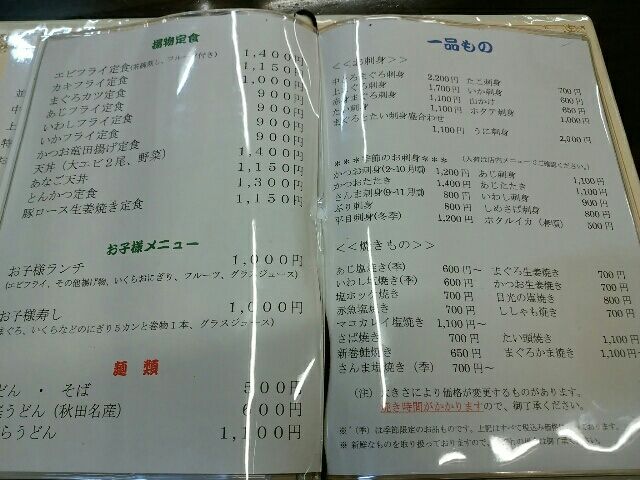 揚物定食
エビフライ定食(茶碗蒸し、フルーツ付き) 1,400円
カキフライ定食 1,150円
まぐろカツ定食 1,000円
あじフライ定食 900円
いわしフライ定食 900円
いかフライ定食 900円
かつお竜田揚げ定食 900円
天丼（大エビ２尾、野菜） 1,400円
あなご天丼 1,150円
とんかつ定食 1,300円
豚ロース生姜焼き定食 1,150円
お子様メニュー
お子様ランチ 1,000円
(エビフライ、その他揚げ物、いくらおにぎり、フルーツ、グラスジュース)
お子様寿し 1,000円
まぐろ、いくらなどのにぎり５カンと巻物１本、グラスジュース)
麺類
どん ・ そば 500円
うどん（秋田名産） 600円
らうどん 1,100円
一品もの
＜＜お刺身＞＞
中とろまぐろ刺身 2,200円 たこ刺身 700円
上まぐろ刺身 1,700円 いか刺身 600円
赤身まぐろ刺身 1,100円 山かけ 650円
たい刺身 1,000円 ホタテ刺身 1,000円
まぐろとたい刺身盛合わせ 1,100円 うに刺身 2,000円
＊＊＊季節のお刺身＊＊＊ (入荷は店内メニューでご確認ください。)
かつお刺身(2~10月頃) 1,200円 あじ刺身 1,100円
かつおたたき 1,400円 あじたたき 1,100円
さんま刺身(9~11月頃) 800円 いわし刺身 900円
ぶり刺身 800円 しめさば刺身 800円
平目刺身(冬季) 1,200円 ホタルイカ（春頃） 500円
＜＜焼きもの＞＞
あじ塩焼き(季) 600円～ まぐろ生姜焼き 700円
いわし塩焼き(季) 600円 かつお生姜焼き 700円
塩ホッケ焼き 700円 目光の塩焼き 800円
赤魚塩焼き 700円 ししゃも焼き 700円
マコカレイ塩焼き 1,100円～
さば焼き 700円 たい頭焼き 1,100円
新巻鮭焼き 650円 まぐろかま焼き 1,100円
さんま塩焼き（季） 700円～
（注）大きさにより価格が変更するものがあります。
焼き時間がかかりますので、御了承ください。
※（季）は季節限定のお品ものです。上記はすべて税込み価格
※新鮮なものを取り扱っておりますので、